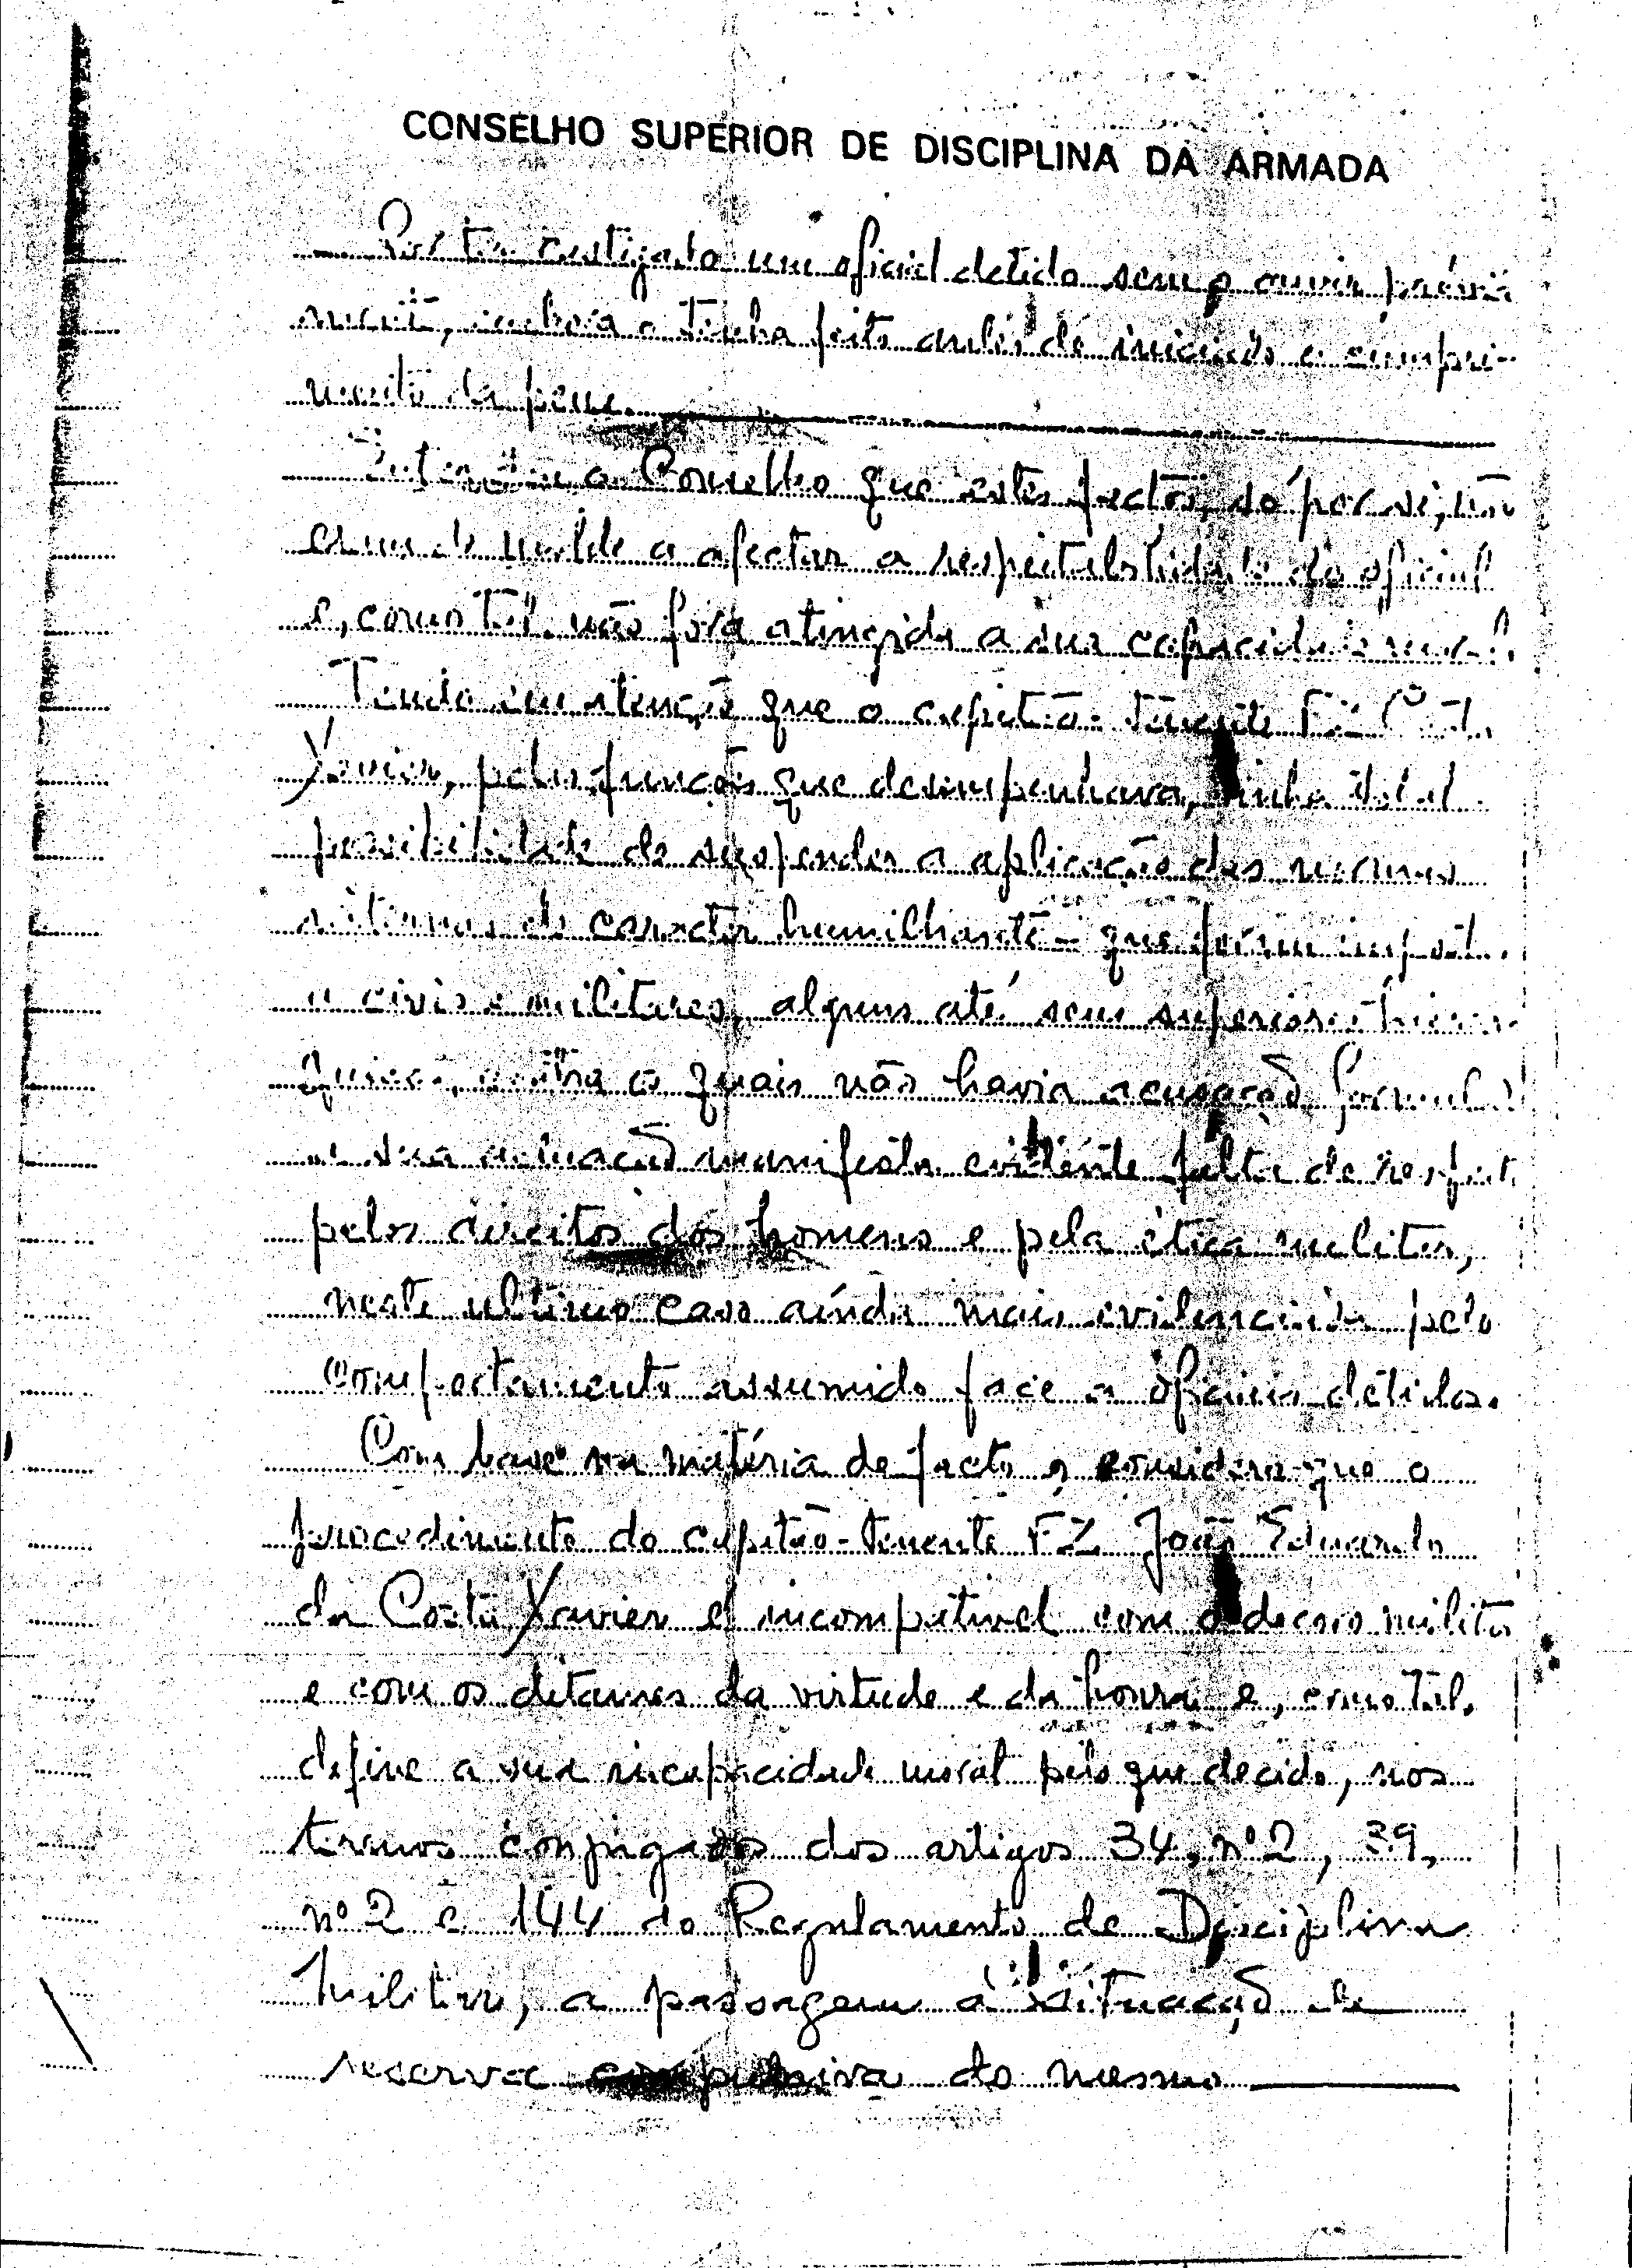 CONSELHO SUPERIOR DE DISCIPLINA DA ARMADA
castigado um oficial detido sem o ouvir prévia
mente, embora o tenha feito antes de iniciado o cumpri-
mento da pena.
o Conselho que estes factos, só por si, não
eram de molde a afectar a respeitabilidade do oficial
e, como tal não fora atingida a sua capacidade moral.
Tendo em atenção que o capitão-tenente FZ Costa
Xavier, pelas funções que desempenhava, tinha total
possibilidade de suspender a aplicação das normas
de caracter humilhante - que foram impostas
a civis e militares, alguns até seus superiores hierar-
quicos, contra os quais não havia acusação formulada
a sua actuação manifesta evidente falta de respeito
pelos direitos dos homens e pela ética militar,
neste ultimo caso ainda mais evidenciada pelo
comportamento assumido face a oficiais detidos.
Com base na matéria de facto e considera que o
procedimento do capitão-tenente FZ João Eduardo
da Costa Xavier é incompativel com o decoro militar
e com os ditames da virtude e da honra e, como tal,
define a sua incapacidade moral pelo que decido, nos
termos conjugados dos artigos 34, nº 2, 39,
nº 2 e 144 do Regulamento de Disciplina
Militar, a passagem à situação de
reserva compulsiva do mesmo